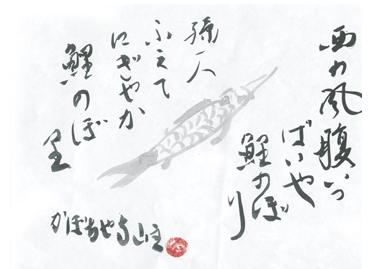 西の風腹いっ
ぱいや
鯉のぼり
孫一人
ふえて
にぎやか
鯉のぼ
里
かぼちゃや山主